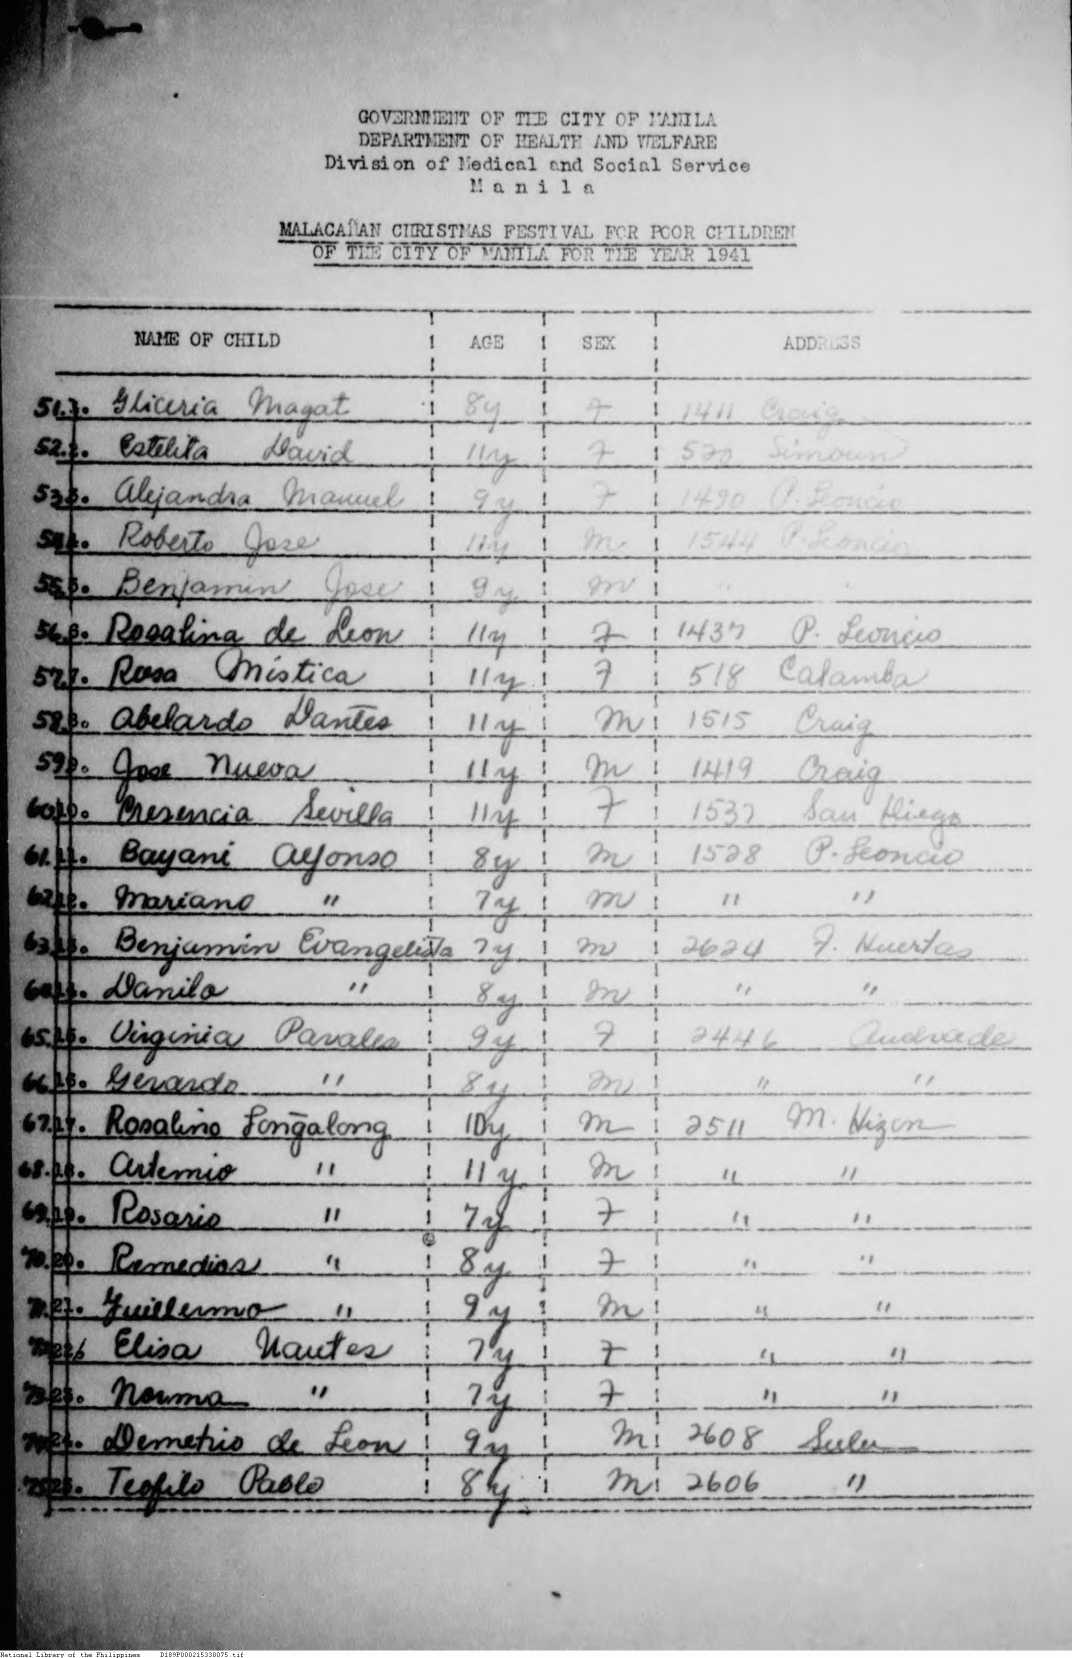 GOVERNMENT OF THE CITY OF MANILA
DEPARTMENT OF HEALTH AND WELFARE
Division of Medical and Social Service
M a n i l a
MALACAÑAN CHRISTMAS FESTIVAL FOR POOR CHILDREN
OF THE CITY OF MANILA FOR THE YEAR 1941
NAME OF CHILD AGE SEX ADDRESS
51. Gliceria Magat 8y F 1411 Craig
52. Estelita David 11y F 520 Simoun
53. Alejandra Manuel 9y F 1490 P. Leoncio
54. Roberto Jose 11y M 1544 P. Leoncio
55. Benjamin Jose 9y M " "
56. Rosalina de Leon 11y F 1437 P. Leoncio
57. Rosa Mistica 11y F 518 Calamba
58. Abelardo Dantes 11y M 1515 Craig
59. Jose Nueva 11y M 1419 Craig
60. Presencia Sevilla 11y F 1537 San Diego
61. Bayani Alfonso 8y M 1528 P. Leoncio
62. Mariano " 7y M " "
63. Benjamin Evangelista 7y M 2624 F. Huertas
64. Danilo " 8y M " "
65. Virginia Pavales 9y F 2446 Andrade
66. Gerardo " 8y M " "
67. Rosalino Longalong 10y M 2511 M. Hizon
68. Artemio " 11y M " "
69. Rosario " 7y F " "
70. Remedios " 8y F " "
71. Guillermo " 9y M " "
72. Elisa Nautes 7y F " "
73. Norma " 7y F " "
74. Demetrio de Leon 9y M 2608 Sulu
75. Teofilo Pablo 8y M 2606 "
National Library of the Philippines D189P000215338075.tif